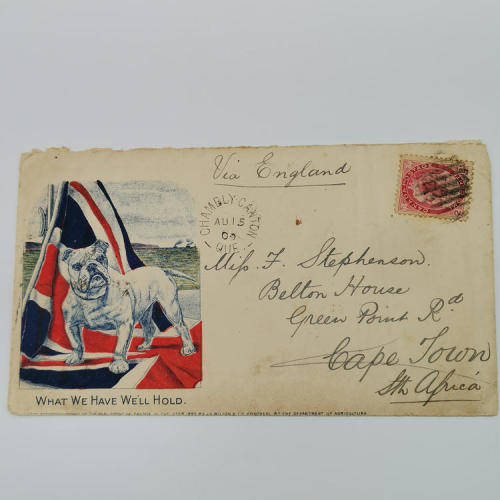 Via England
CHAMBLY-CANTON
AU 15
QUE.
Miss F. Stephenson.
Belton House
Green Point Rd
Cape Town
Sth Africa
WHAT WE HAVE WE'LL HOLD.
BY THE DEPARTMENT OF AGRICULTURE